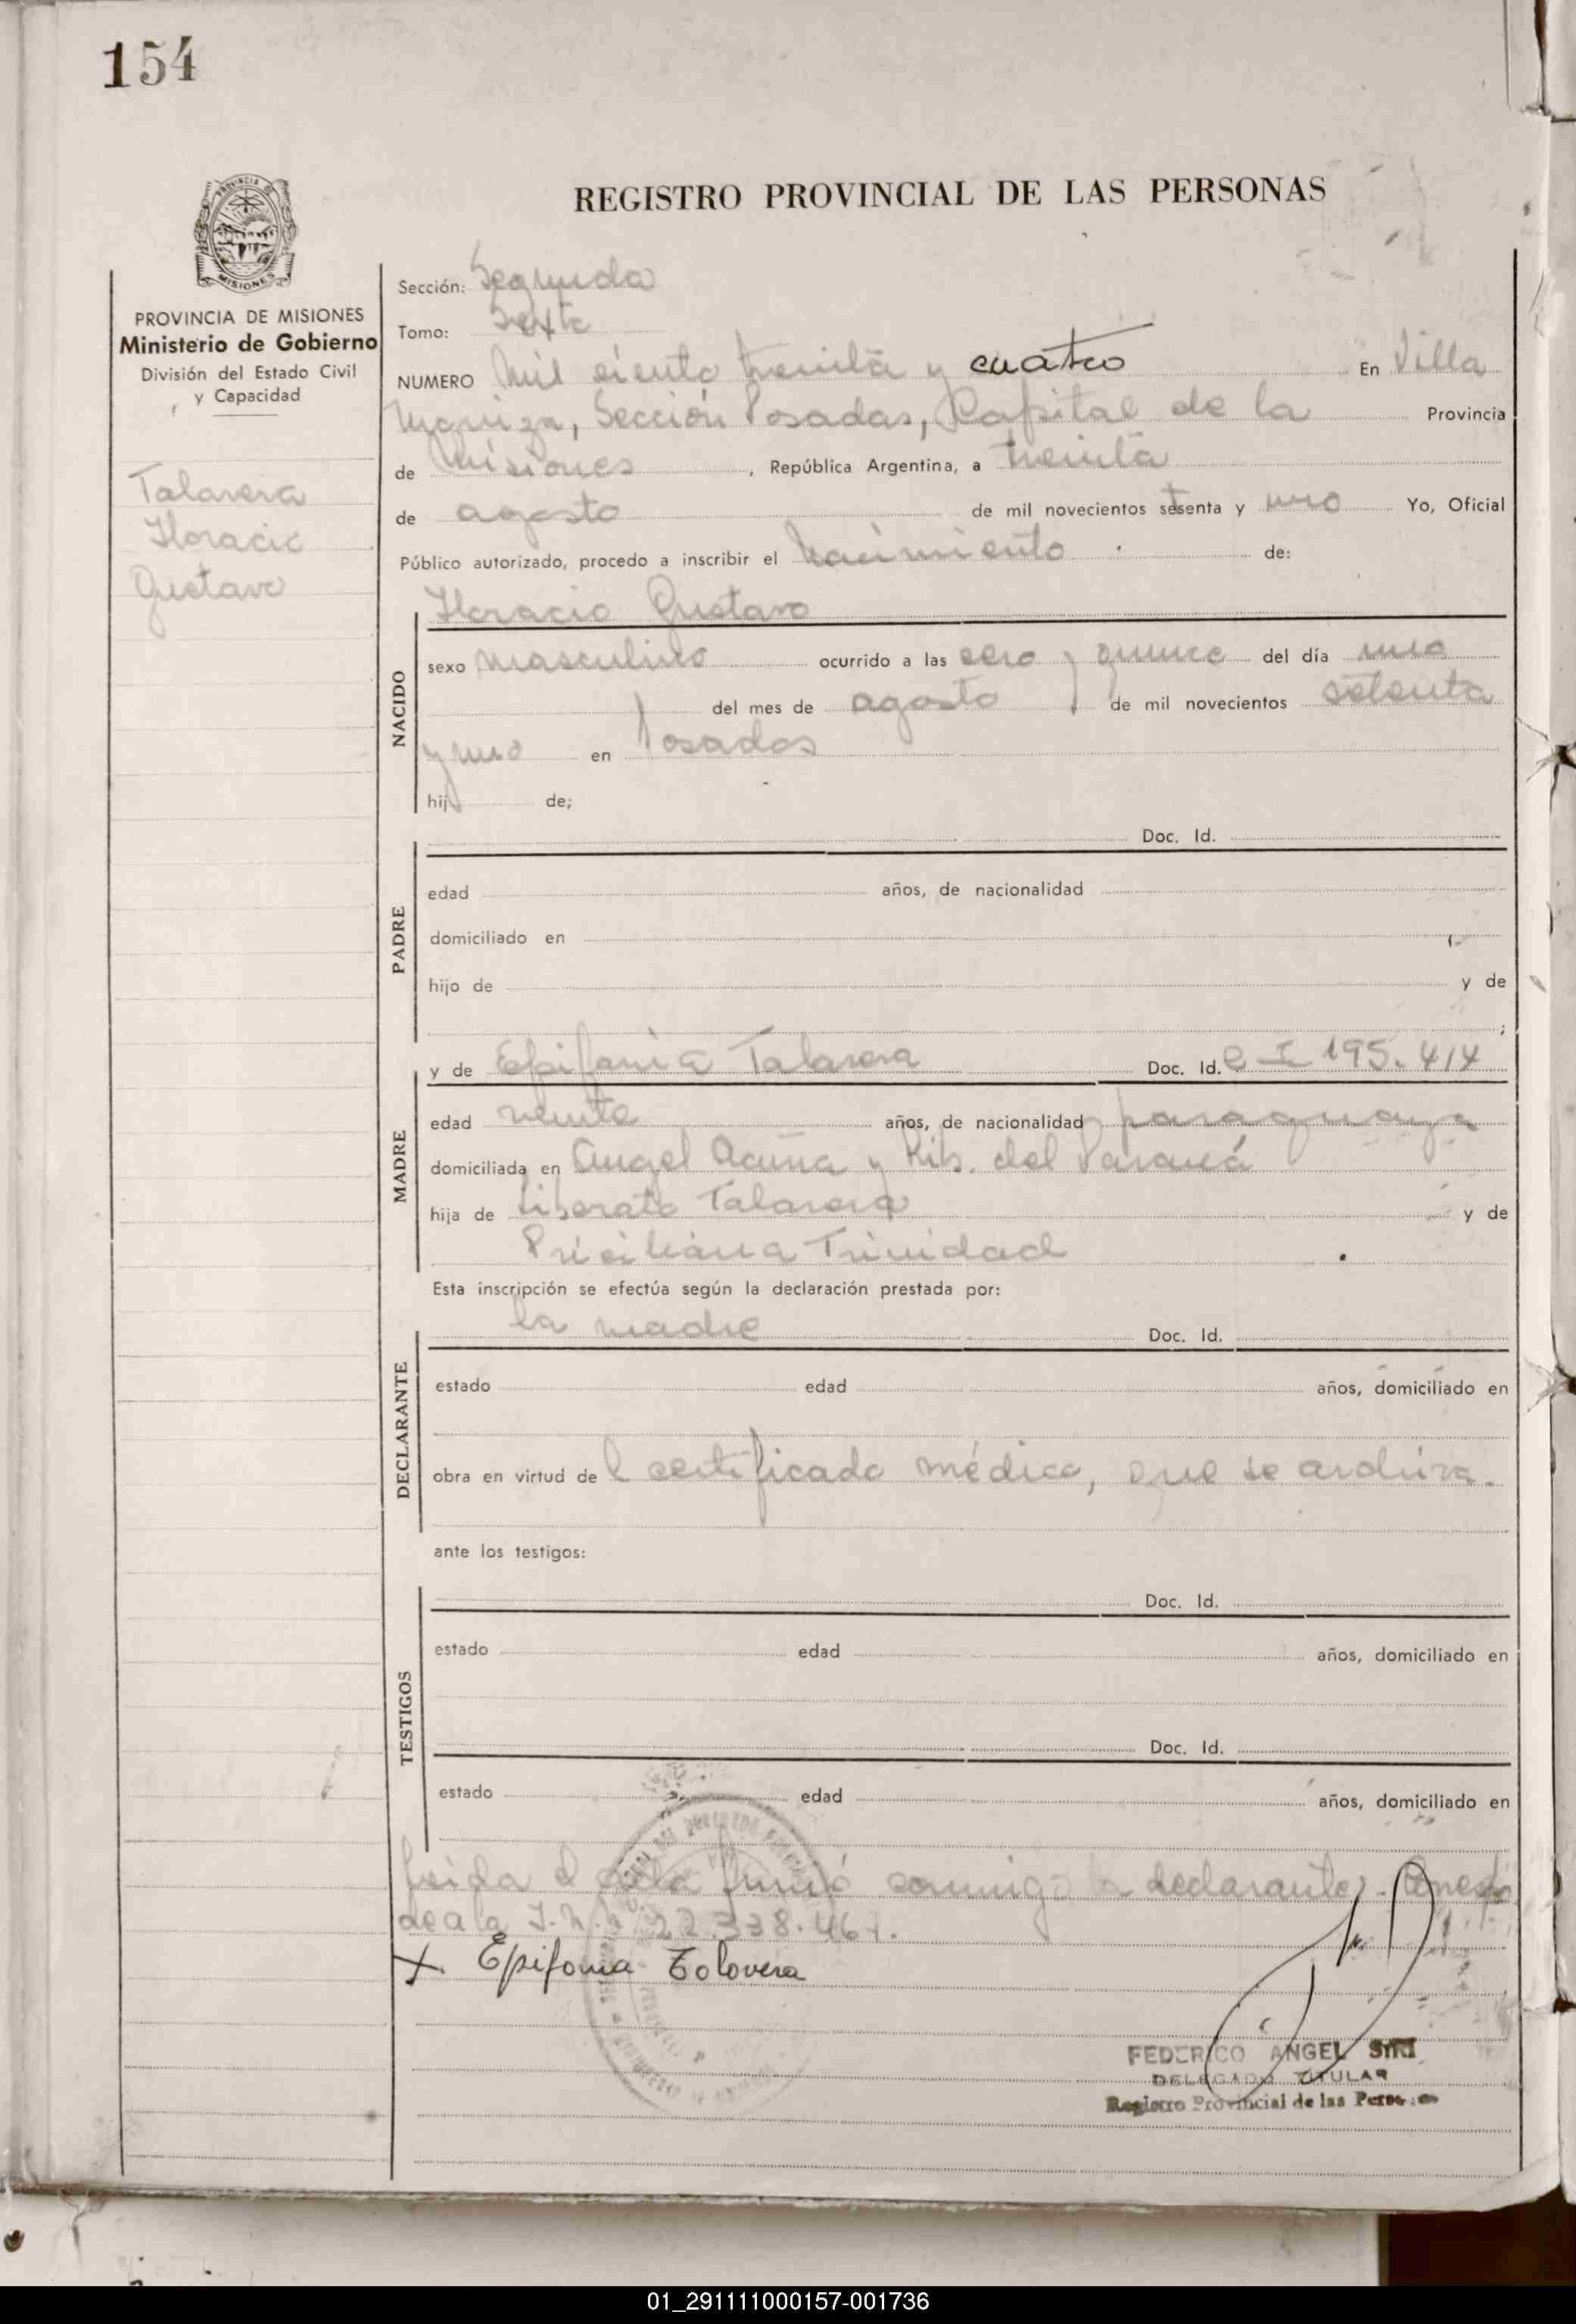 154
REGISTRO PROVINCIAL DE LAS PERSONAS
MISIONES
PROVINCIA DE MISIONES
Ministerio de Gobierno
División del Estado Civil
y Capacidad
Talavera
Horacio
Gustavo
Sección: Segunda
Tomo: Sexto
NUMERO Mil ciento treinta y cuatro En Villa
Urquiza, Sección Posadas, Capital de la Provincia
de Misiones, República Argentina, a treinta
de agosto de mil novecientos setenta y uno Yo, Oficial
Público autorizado, procedo a inscribir el Nacimiento de:
Horacio Gustavo
NACIDO
sexo masculino ocurrido a las cero y quince del día uno
del mes de agosto de mil novecientos setenta
y uno en Posadas
hijo de;
Doc. Id.
PADRE
edad años, de nacionalidad
domiciliado en
hijo de y de
;
y de Epifania Talavera Doc. Id. C I 195.414
MADRE
edad veinte años, de nacionalidad paraguaya
domiciliada en Angel Acuña y Rib. del Paraná
hija de Liberato Talavera y de
Prisiliana Trinidad
Esta inscripción se efectúa según la declaración prestada por:
la madre Doc. Id.
DECLARANTE
estado edad años, domiciliado en
obra en virtud del certificado médico, que se archiva.
ante los testigos:
Doc. Id.
TESTIGOS
estado edad años, domiciliado en
Doc. Id.
estado edad años, domiciliado en
Leida el acta firmó conmigo la declarante. Corresponde
de a la 22.338.467.
X Epifania Tolovera
FEDERICO ANGEL SIRI
DELEGADO TITULAR
Registro Provincial de las Personas
01_291111000157-001736